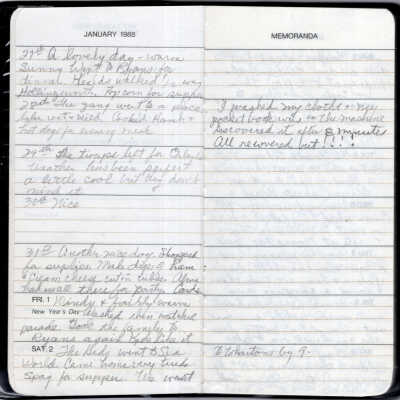 JANUARY 1988
27th A lovely day - warm
Sunny Went to Ryans for
dinner. Heids walked
Hollingsworth. Popcorn for supper
28th The gang went to a place
Cooked Ham &
hot dogs for evening meal
29th The troups left for
Weather has been perfect
a little cool but they don't
mind it
30th Nice
31st Another nice day. Shopped
for supplies. Made dips & Ham
& Cream cheese cut in cubes.
for party. Cards
FRI. 1 Windy & fairly warm
New Year's Day Washed then watched
parade. Took the family to
Ryans again like it
SAT. 2 The Gang went to Sea
World Came home very tired
Spag for supper. We went
MEMORANDA
I washed my cloths & my
pocket book was in the machine
Discovered it after 8 minutes
All recovered but !!!!
to Whartons by 9.